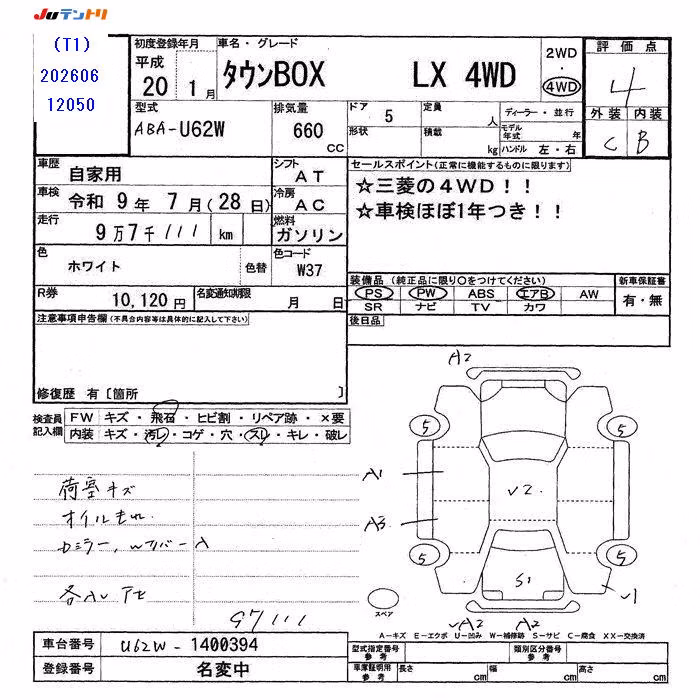 JUテントリ
(T1)
202606
12050
初度登録年月
平成
20 1月
車名・グレード
タウンBOX LX 4WD
2WD
・
4WD
評価点
4
外装 内装
C B
型式
ABA-U62W
排気量
660
cc
ドア 5
形状
定員 人
積載 kg
ディーラー・並行
モデル年式 年
ハンドル 左・右
車歴
自家用
シフト
AT
車検
令和 9年 7月(28日)
冷房
AC
走行
9万7千111 km
燃料
ガソリン
色
ホワイト
色替
色コード
W37
R券
10,120円
名変通知期限
月 日
セールスポイント(正常に機能するものに限ります)
☆三菱の4WD!!
☆車検ほぼ1年つき!!
装備品(純正品に限り〇をつけてください)
PS PW ABS エアB AW
SR ナビ TV カワ
新車保証書
有・無
後日品
注意事項申告欄(不具合内容等は具体的に記入して下さい)
修復歴 有〔箇所 〕
検査員記入欄
FW キズ・飛石・ヒビ割・リペア跡・×要
内装 キズ・汚レ・コゲ・穴・スレ・キレ・破レ
荷室キズ
オイルもれ
カミラー、Wリバー入
各AU下せ
97111
A2
5 5
A1
A3
V2
5 5
S1
U1
スペア
UA2 A2
A-キズ E-エクボ U-凹み W-補修跡 S-サビ C-腐食 XX-交換済
車台番号
U62W-1400394
登録番号
名変中
型式指定番号
参考
類別区分番号
参考
車庫証明用
参考
長さ cm
幅 cm
高さ cm